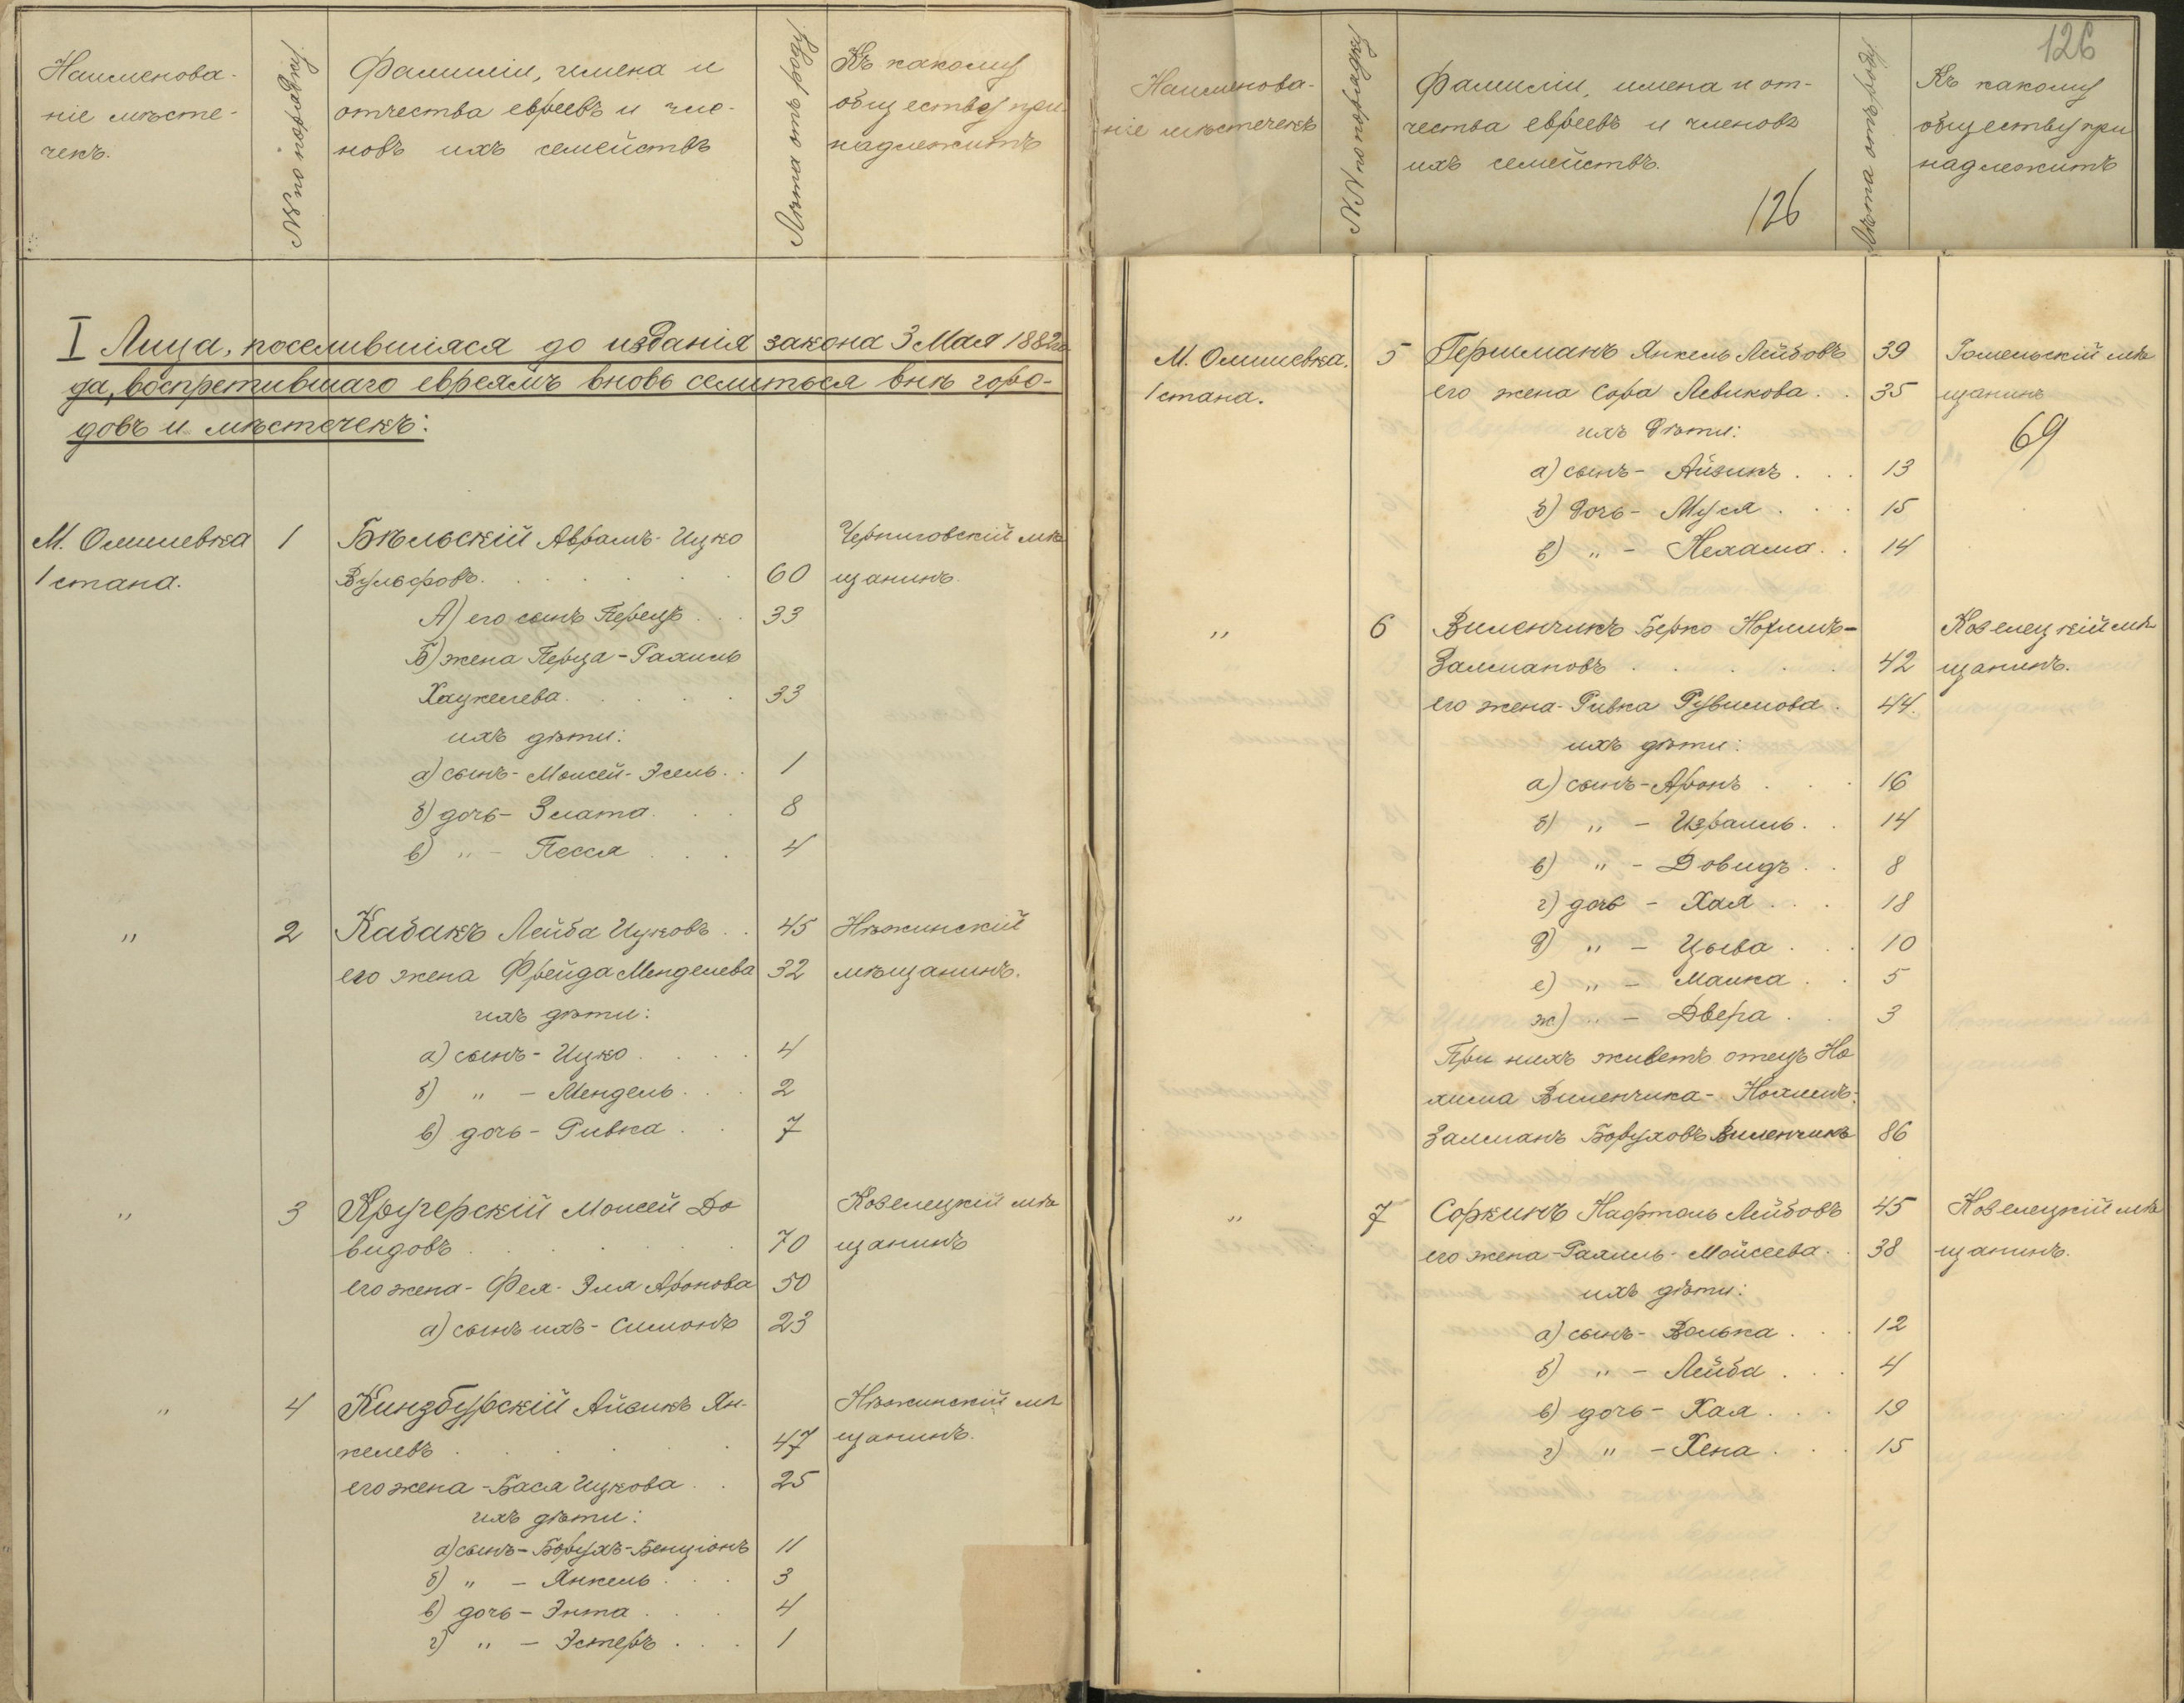 Наименова-
ніе мѣсте-
чекъ.
№№ по порядку
Фамиліи, имена и
отчества евреевъ и чле-
новъ ихъ семействъ
Лѣта отъ роду
Къ какому
обществу при
надлежитъ
I Лица, поселившіяся до изданія закона 3 Мая 1882 го
да, воспретившаго евреямъ вновь селиться внѣ горо-
довъ и мѣстечекъ:
М. Олишевка 1 Бѣльскій Аврамъ-Ицко Черниговскій мѣ
1 стана. Вульфовъ. 60 щанинъ.
А) его сынъ Перецъ 33
Б) жена Перца-Рахиль
Хацкелева. 33
ихъ дѣти:
а) сынъ-Моисей-Эсель. 1
б) дочь-Злата. 8
в) „ - Песся 4
„ 2 Кабакъ Лейба Ицковъ 45 Нѣжинскій
его жена Фрейда Менделева 32 мѣщанинъ.
ихъ дѣти:
а) сынъ-Ицко 4
б) „ - Мендель. 2
в) дочь-Ривка 7
„ 3 Кручерскій Моисей До Козелецкій мѣ
видовъ 70 щанинъ
его жена-Фея-Эля Аронова 50
а) сынъ ихъ-Симонъ 23
„ 4 Киндбурскій Айзикъ Ян- Нѣжинскій мѣ
келевъ 47 щанинъ.
его жена-Бася Ицкова 25
ихъ дѣти:
а) сынъ-Борухъ-Бенціонъ 11
б) „ - Янкель 3
в) дочь-Энта 4
г) „ - Эстеръ 1
126
Наименова-
ніе мѣстечекъ
№№ по порядку
Фамиліи, имена и от-
чества евреевъ и членовъ
ихъ семействъ.
126
Лѣта отъ роду
Къ какому
обществу при
надлежитъ
М. Олишевка. 5 Гершманъ Янкель Лейбовъ 39 Гомельскій мѣ
1 стана. его жена Сора Левикова 35 щанинъ
ихъ дѣти: 69
а) сынъ-Айзикъ 13
б) дочь-Муся 15
в) „ - Нехама 14
„ 6 Виленчикъ Берко Нохимъ- Козелецкій мѣ
Залмановъ 42 щанинъ.
его жена-Ривка Рувимова 44.
ихъ дѣти:
а) сынъ-Аронъ 16
б) „ - Израиль 14
в) „ - Довидъ 8
г) дочь - Хая 18
д) „ - Цыва 10
е) „ - Малка 5
ж) „ - Двера 3
При нихъ живетъ отецъ Но
хима Виленчика-Нохимъ-
Залманъ Боруховъ Виленчикъ 86
„ 7 Соркинъ Нафтоль Лейбовъ 45 Козелецкій мѣ
его жена-Рахиль-Мойсеева 38 щанинъ.
ихъ дѣти:
а) сынъ-Волька 12
б) „ - Лейба 4
в) дочь-Хая 19
г) „ - Хена 15